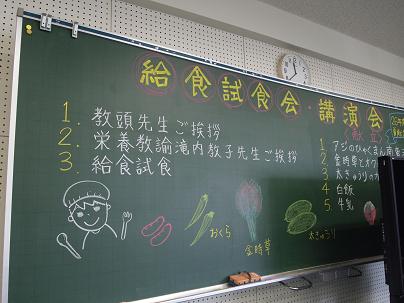 給食試食会・講演会
1. 教頭先生ご挨拶
2. 栄養教諭滝内教子先生ご挨拶
3. 給食試食
〈献立〉
1 アジのひゃくまん
2 金時草とオク
3 太きゅうりの
4 白飯
5 牛乳
おくら
金時草
太きゅうり